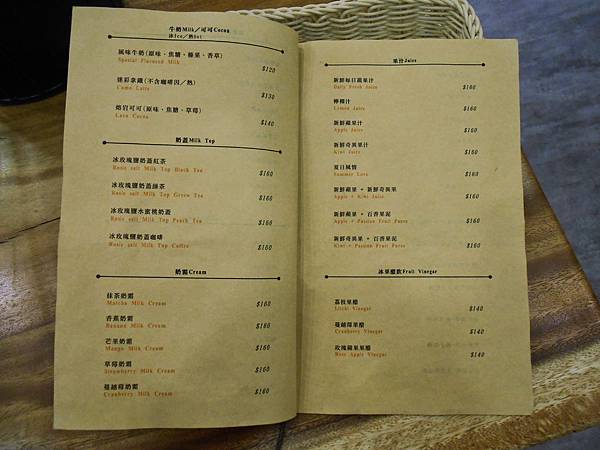 牛奶Milk／可可Cocoa
冰Ice／熱Hot
風味牛奶(原味、焦糖、榛果、香草)
Special Flavored Milk $120
迷彩拿鐵(不含咖啡因／熱)
Camo Latte $130
熔岩可可(原味、焦糖、草莓)
Lava Cocoa $140
奶蓋Milk Top
冰玫瑰鹽奶蓋紅茶
Rosic salt Milk Top Black Tea $160
冰玫瑰鹽奶蓋綠茶
Rosic salt Milk Top Green Tea $160
冰玫瑰鹽水蜜桃奶蓋
Rosic salt Milk Top Peach Tea $160
冰玫瑰鹽奶蓋咖啡
Rosic salt Milk Top Coffee $160
奶霜Cream
抹茶奶霜
Matcha Milk Cream $160
香蕉奶霜
Banana Milk Cream $160
芒果奶霜
Mango Milk Cream $160
草莓奶霜
Strawberry Milk Cream $160
蔓越莓奶霜
Cranberry Milk Cream $160
果汁Juice
新鮮每日蔬果汁
Daily Fresh Juice $160
檸檬汁
Lemon Juice $160
新鮮蘋果汁
Apple Juice $160
新鮮奇異果汁
Kiwi Juice $160
夏日風情
Summer Love $160
新鮮蘋果 + 新鮮奇異果
Apple + Kiwi Juice $160
新鮮蘋果 + 百香果泥
Apple + Passion Fruit Puree $160
新鮮奇異果 + 百香果泥
Kiwi + Passion Fruit Puree $160
冰果醋飲Fruit Vinegar
荔枝果醋
Litchi Vinegar $140
蔓越莓果醋
Cranberry Vinegar $140
玫瑰蘋果果醋
Rose Apple Vinegar $140